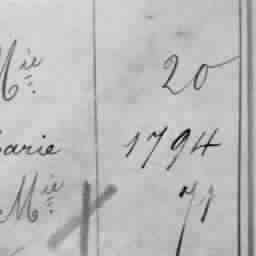 Mie 20
arie 1794
Mie 71